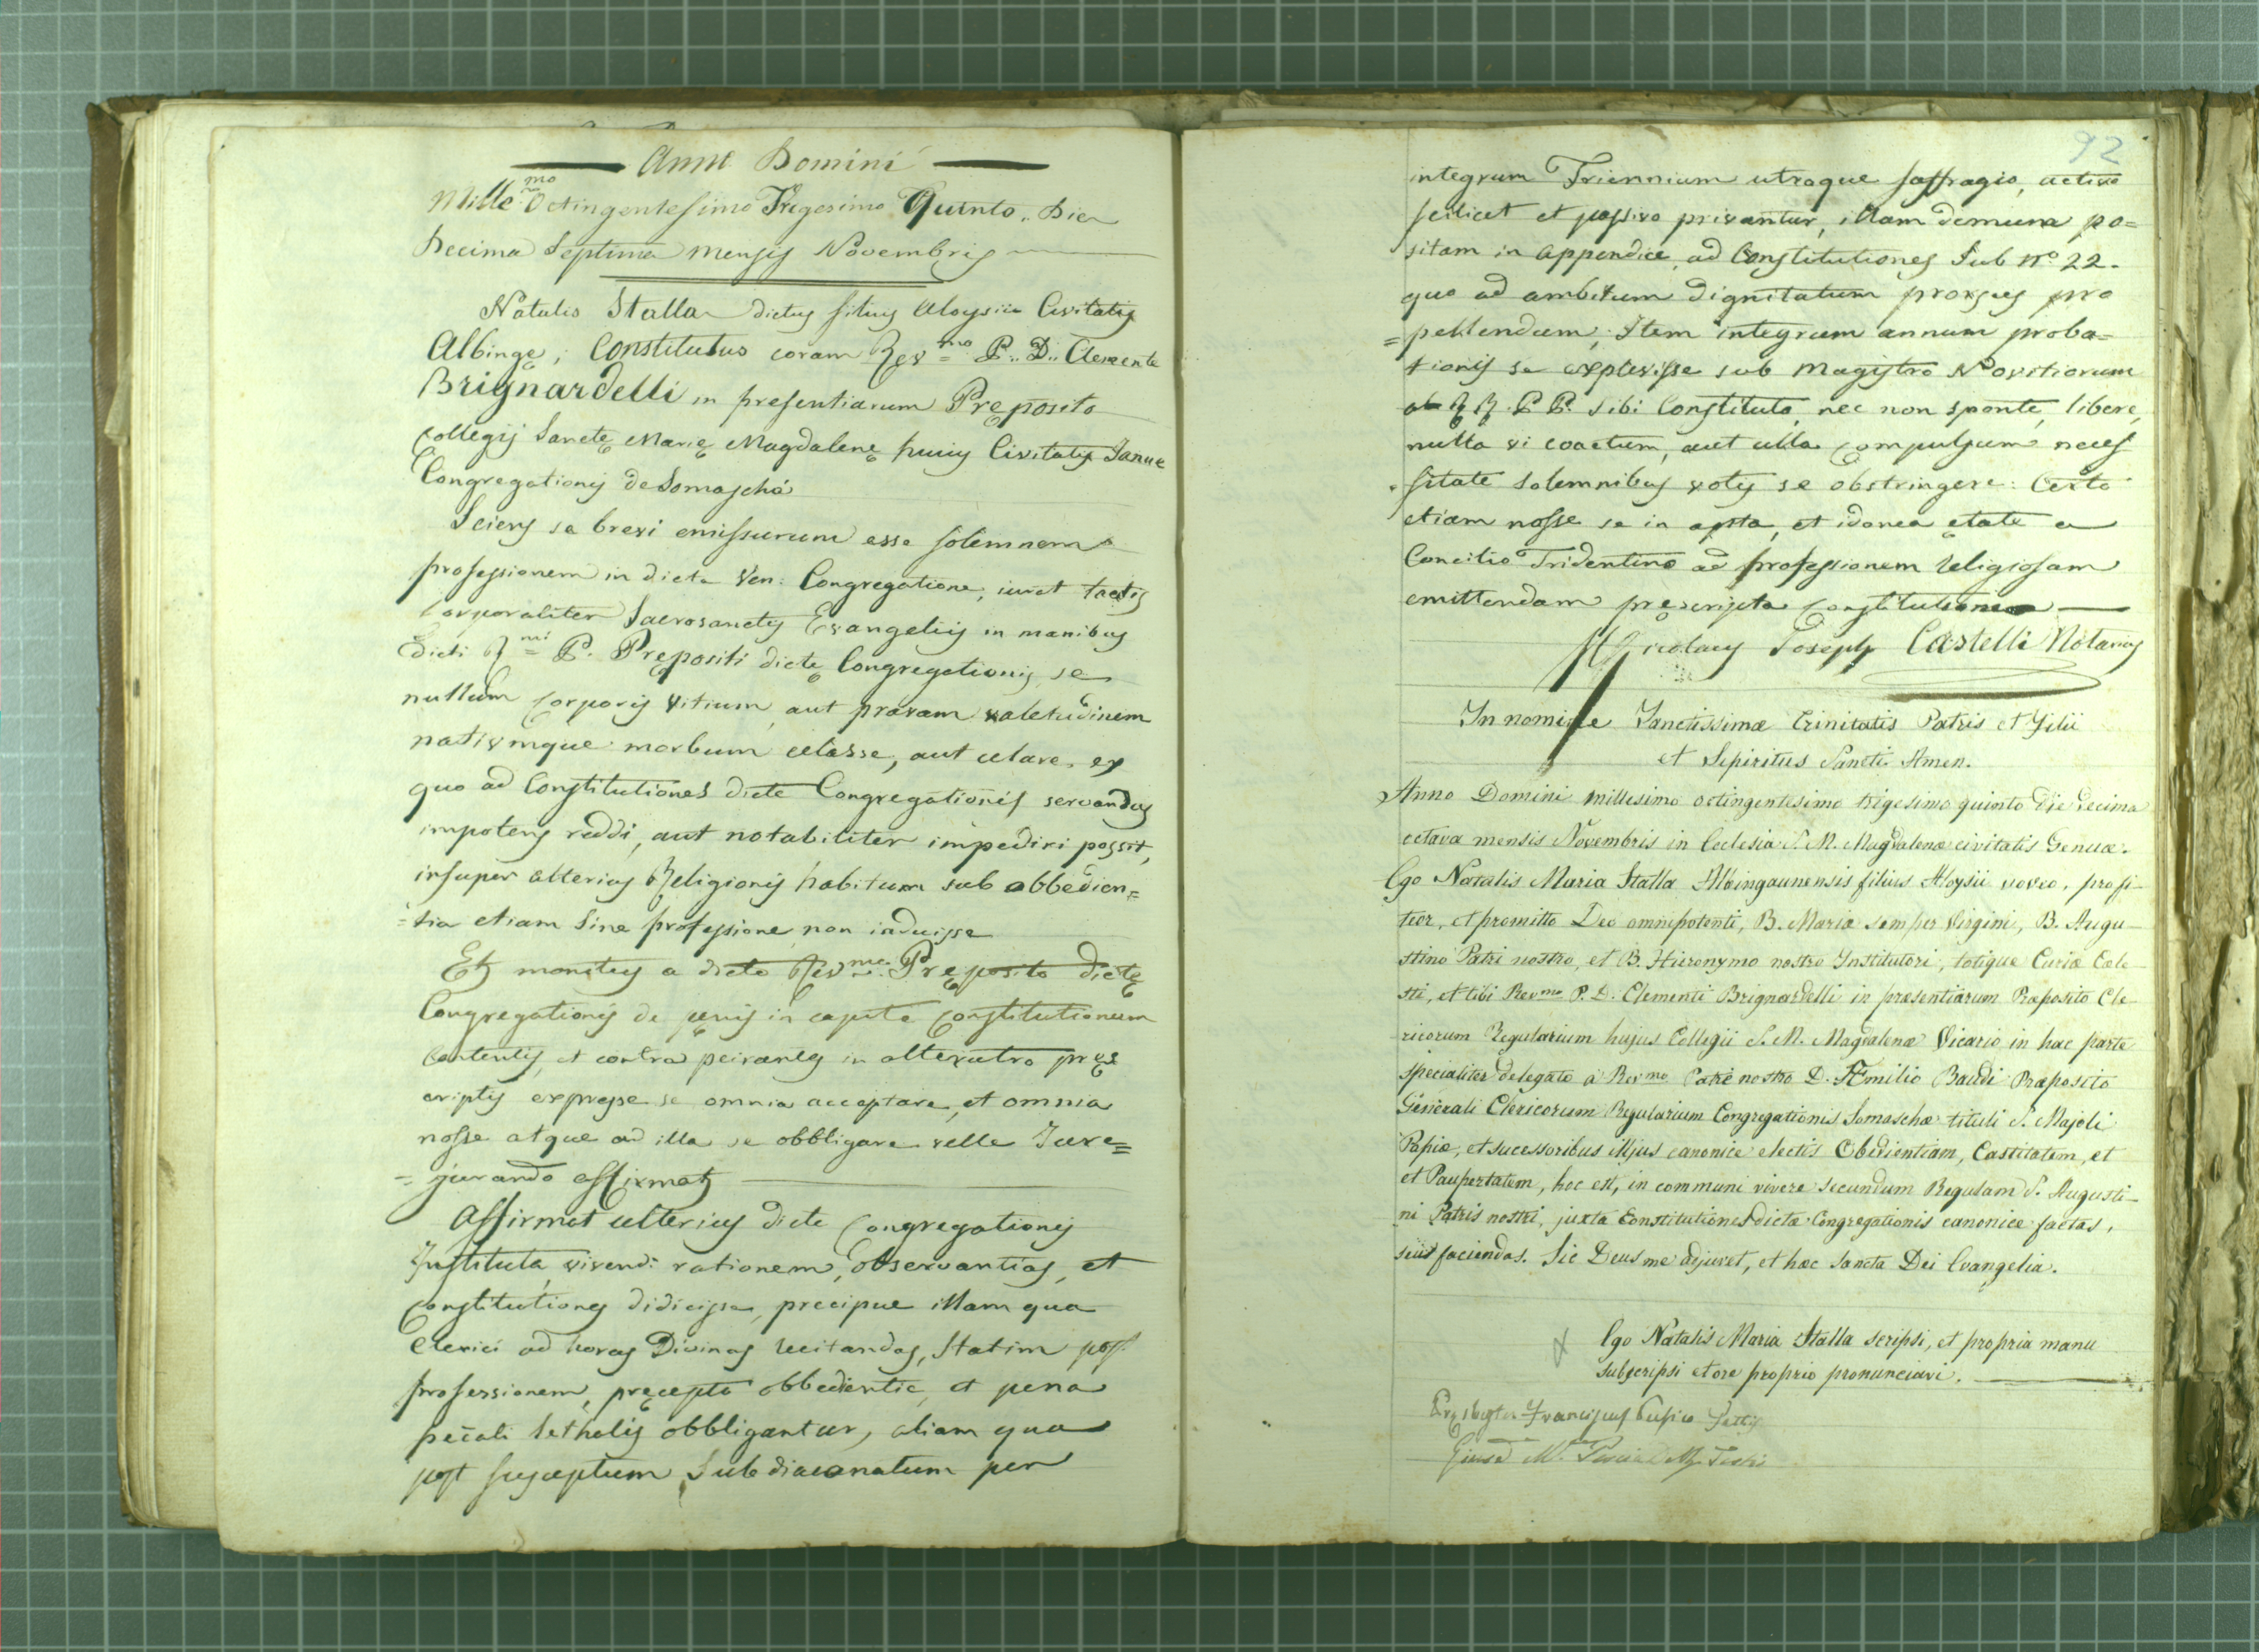 Anno Domini
Mille.mo Octingentesimo Trigesimo Quinto.. Die
Decima Septima mensis Novembris
Natalis Stalla dictus filius Aloysii Civitatis
Albingę, Constitutus coram Rev.mo P.. D.. Clemente
Brignardelli in presentiarum Pręposito
Collegij Sanctę Marię Magdalenę huius Civitatis Janue
Congregationis de Somascha
Sciens se brevi emissurum esse solemnem
professionem in dicta Ven: Congregatione, iuret tactis
corporaliter Sacrosanctis Evangeliis in manibus
Dicti R.mi P. Prępositi dictę Congregationis se
nullum corporis vitium, aut pravam valetudinem
nativumque morbum celasse, aut celare, ex
quo ad Constitutiones dicte Congregationis servandas
impotens reddi, aut notabiliter impediri possit,
insuper alterius Religionis habitum sub obbedien=
=tia etiam sine professione non induisse
Et monitus a dicto Rev.mo Pręposito dictę
Congregationis de penis in capite constitutionum
contentis, et contra in alterutro pręs
criptis expresse se omnia acceptare, et omnia
nosse atque ad illa se obbligare velle Jure=
=jurando affirmat
Affirmat ulterius dicte Congregationis
Instituta, vivendi rationem, observantias, et
constitutiones didicisse, precipue illam qua
Clerici ad horas Divinas recitandas, statim post
professionem, pręcepto obbedientie, et pena
peccati lethalis obbligantur, aliam qua
post susceptum Subdiaconatum per
92
integrum Triennium utroque saffragio, activo
scilicet et passivo privantur, illam demum po=
sitam in appendice ad Constitutiones Sub N.o 22.
quo ad ambitum dignitatum prorsus pro
=pellendum; Item integrum annum proba=
tionis se explevisse sub Magistro Novitiorum
ab R R. P P. sibi Constituto, nec non sponte, libere,
nulla vi coactum, aut ulla compulsum neces
sitate solemnibus votis se obstringere: Certo
etiam nosse se in apta, et idonea ętate a
Concilio Tridentino ad professionem religiosam
emittendam pręscripta constitutum
Nicolaus Joseph Castelli Notarius
In nomine Sanctissimæ Trinitatis Patris et Filii
et Sepiritus Sancti Amen.
Anno Domini millesimo octingentesimo trigesimo quinto die decima
octava mensis Novembris in Ecclesia S. M. Magdalenæ civitatis Genuæ.
Ego Natalis Maria Stalla Albingaunensis filius Aloysii voveo, profi-
teor, et promitto Deo omnipotenti, B. Mariæ semper Virgini, B. Augu-
stino Patri nostro, et B. Hieronymo nostro Institutori, totique Curiæ Cœle-
sti, et tibi Rev.mo P. D. Clementi Brignardelli in præsentiarum Præposito Cle-
ricorum Regularium hujus Collegii S. M. Magdalenæ Vicario in hac parte
specialiter delegato a Rev.mo Patre nostro D. Æmilio Baudi Præposito
Generali Clericorum Regularium Congregationis Somaschæ tituli S. Majoli
Papiæ, et sucessoribus illjus canonice electis Obedientiam, Castitatem, et
et Paupertatem, hoc est, in communi vivere secundum Regulam S. Augusti-
ni Patris nostri, juxta Constitutiones dictæ Congregationis canonice factas,
seu faciendas. Sic Deus me adjuvet, et hæc sancta Dei Evangelia.
Ego Natalis Maria Stalla scripsi, et propria manu
subscripsi et ore proprio pronunciavi.
Presbyter Franciscus Testis